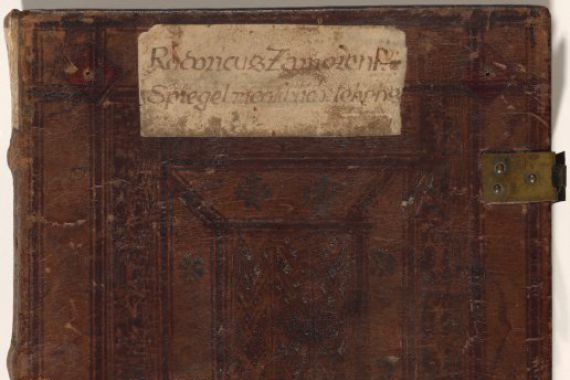 Rodoricus Zamorens
Spiegel menschlich lebens